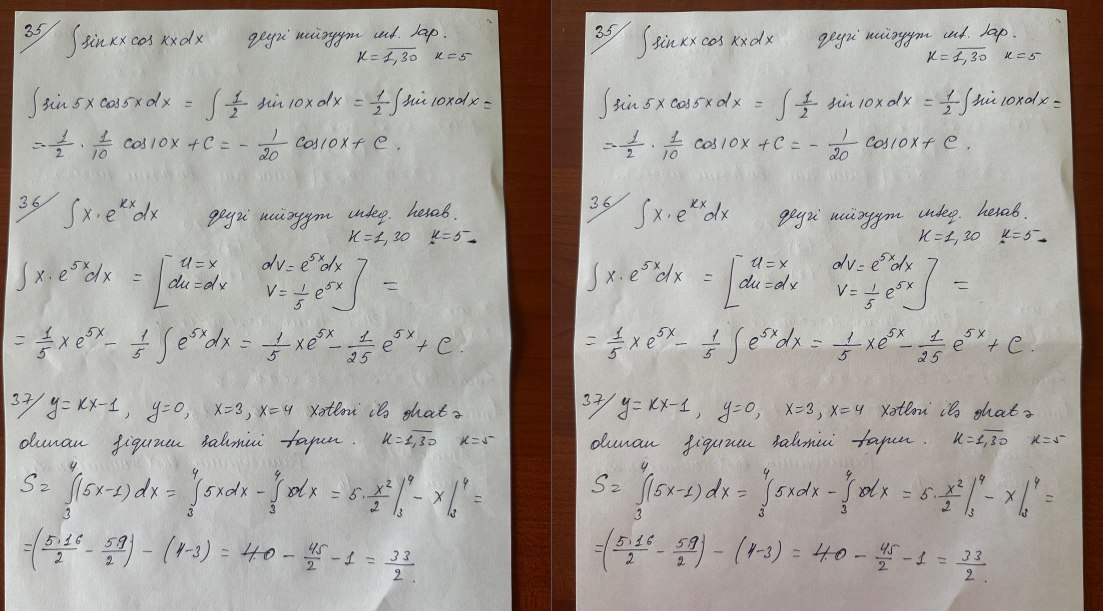 35/ ∫ sin kx cos kx dx qeyri müəyyən int. tap.
K=1,30 k=5
∫ sin 5x cos 5x dx = ∫ 1/2 sin 10x dx = 1/2 ∫ sin 10x dx =
= -1/2 · 1/10 cos 10x + C = - 1/20 cos 10x + C.
36/ ∫ x · e^kx dx qeyri müəyyən inteq. hesab.
K=1,30 k=5
∫ x · e^5x dx = [ u=x dv=e^5x dx
du=dx v=1/5 e^5x ] =
= 1/5 x e^5x - 1/5 ∫ e^5x dx = 1/5 x e^5x - 1/25 e^5x + C.
37/ y=kx-1, y=0, x=3, x=4 xətləri ilə əhatə
olunan fiqurun sahəsini tapın. K=1,30 k=5
S= ∫₃⁴ (5x-1) dx = ∫₃⁴ 5x dx - ∫₃⁴ dx = 5· x²/2 |₃⁴ - x |₃⁴ =
= (5·16/2 - 5·9/2) - (4-3) = 40 - 45/2 - 1 = 33/2.
35/ ∫ sin kx cos kx dx qeyri müəyyən int. tap.
K=1,30 k=5
∫ sin 5x cos 5x dx = ∫ 1/2 sin 10x dx = 1/2 ∫ sin 10x dx =
= -1/2 · 1/10 cos 10x + C = - 1/20 cos 10x + C.
36/ ∫ x · e^kx dx qeyri müəyyən inteq. hesab.
K=1,30 k=5
∫ x · e^5x dx = [ u=x dv=e^5x dx
du=dx v=1/5 e^5x ] =
= 1/5 x e^5x - 1/5 ∫ e^5x dx = 1/5 x e^5x - 1/25 e^5x + C.
37/ y=kx-1, y=0, x=3, x=4 xətləri ilə əhatə
olunan fiqurun sahəsini tapın. K=1,30 k=5
S= ∫₃⁴ (5x-1) dx = ∫₃⁴ 5x dx - ∫₃⁴ dx = 5· x²/2 |₃⁴ - x |₃⁴ =
= (5·16/2 - 5·9/2) - (4-3) = 40 - 45/2 - 1 = 33/2.